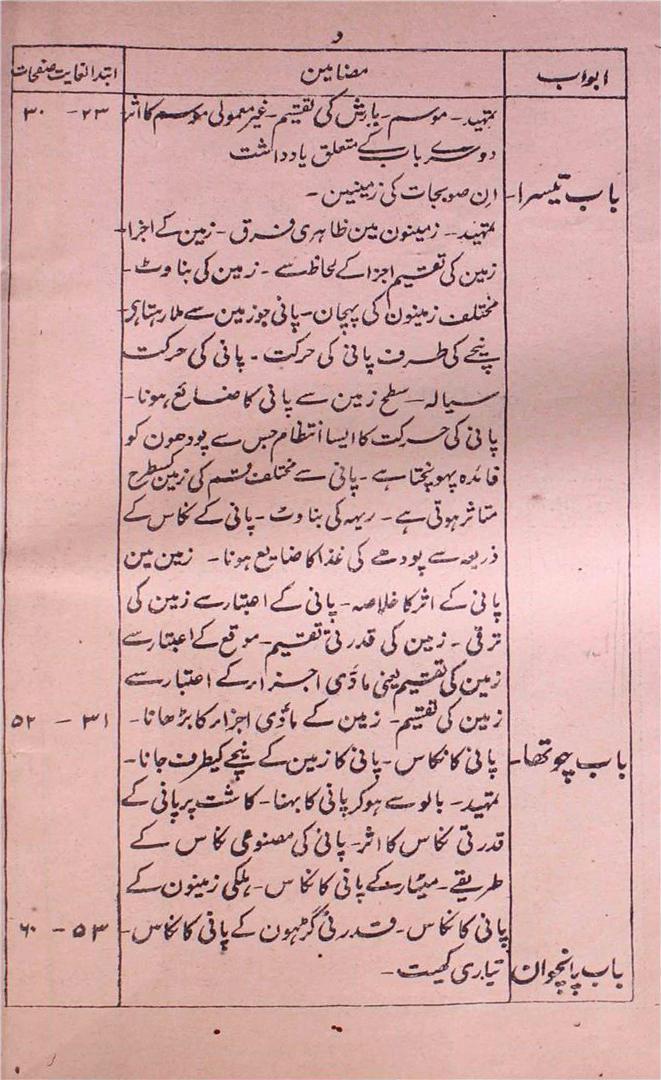 و
ابواب مضامین ابتدا لغایت صفحات
تمہید۔ موسم۔ بارش کی تقسیم۔ غیر معمولی موسم کا اثر ۲۳ – ۳۰
دوسرے باب کے متعلق یادداشت
باب تیسرا۔ ان صوبجات کی زمینین۔
تمہید۔ زمینون مین ظاہری فرق۔ زمین کے اجزا۔
زمین کی تقسیم اجزا کے لحاظ سے۔ زمین کی بناوٹ۔
مختلف زمینون کی پہچان۔ پانی جو زمین سے ملا رہتا ہی۔
نیچے کی طرف پانی کی حرکت۔ پانی کی حرکت
سیالہ۔ سطح زمین سے پانی کا ضائع ہونا۔
پانی کی حرکت کا ایسا انتظام جس سے پودھون کو
فائدہ پہونچتا ہے۔ پانی سے مختلف قسم کی زمین کسطرح
متاثر ہوتی ہے۔ ریہہ کی بناوٹ۔ پانی کے نکاس کے
ذریعہ سے پودھے کی غذا کا ضایع ہونا۔ زمین مین
پانی کے اثر کا خلاصہ۔ پانی کے اعتبار سے زمین کی
ترقی۔ زمین کی قدرتی تقسیم۔ موقع کے اعتبار سے
زمین کی تقسیم یعنی مادّی اجزار کے اعتبار سے
زمین کی تقسیم۔ زمین کے مادّی اجزار کا بڑھانا۔ ۳۱ – ۵۲
باب چوتھا۔ پانی کا نکاس۔ پانی کا زمین کے نیچے کیطرف جانا۔
تمہید۔ بالو سے ہو کر پانی کا بہنا۔ کاشت پر پانی کے
قدرتی نکاس کا اثر۔ پانی کی مصنوعی نکاس کے
طریقے۔ مٹیار کے پانی کا نکاس۔ ہلکی زمینون کے
پانی کا نکاس۔ قدرتی گڑہون کے پانی کا نکاس۔ ۵۳ – ۶۰
باب پانچوان تیاری کھیت۔